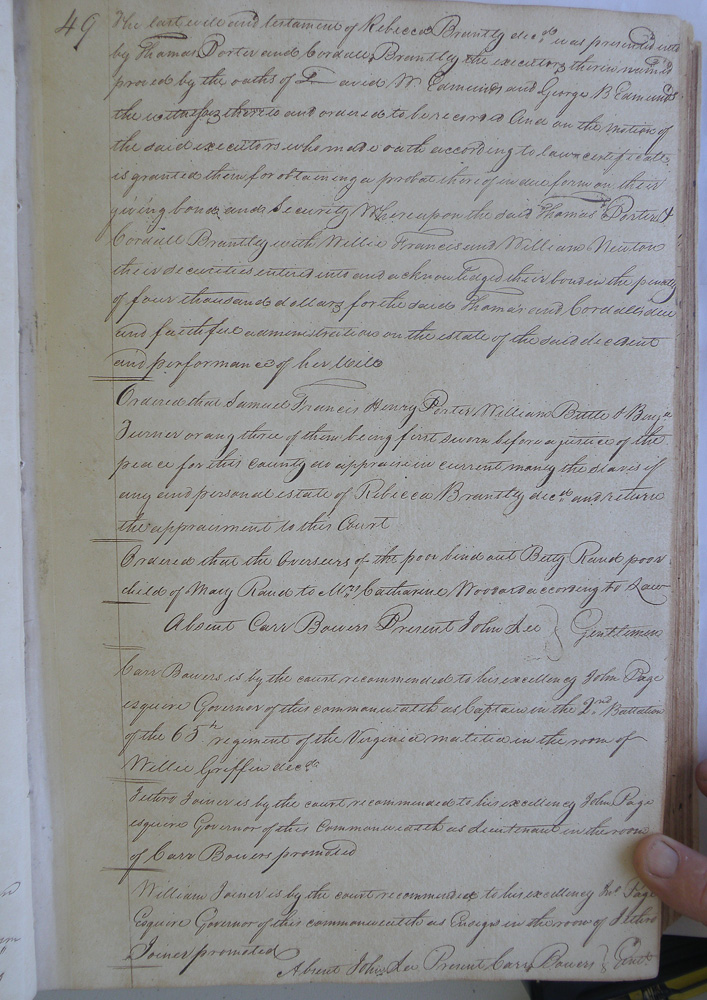 49
The last will and testament of Rebecca Brantly decd. was presented into
by Thomas Porter and Cordall Brantly the executors therein named
proved by the oaths of David W Edmunds and George B Edmunds
the witnesses thereto and ordered to be record And on the motion of
the said executors who made oath according to law certificate
is granted them for obtaining a probat thereof in due form on their
giving bond and Security Whereupon the said Thomas Porter &
Cordall Brantly with Willie Francis and William Newton
their securities entered into and acknowledged their bond in the penalty
of four thousand dollars for the said Thomas and Cordalls due
and faithful administration on the estate of the said decedent
and performance of her Will
Ordered that Samuel Francis Henry Porter William Bittle & Benja
Turner or any three of them being first sworn before a justice of the
peace for this County do appraise in current money the slaves if
any and personal estate of Rebecca Brantly decd. and return
the appraisment to this Court
Ordered that the Overseers of the poor bind out Betty Rand poor
child of Mary Rand to Mrs. Catharine Woodard according to Law
Absent Carr Bowers Present John Lee } Gentlemen
Carr Bowers is by the court recommended to his excellency John Page
esquire Governor of this commonwealth as Captain in the 2nd Battalion
of the 65th regiment of the Virginia matitia in the room of
Willie Griffin decd.
Jethro Joiner is by the court recommended to his excellency John Page
esquire Governor of this Commonwealth as Lieutenant in the room
of Carr Bowers promoted
William Joiner is by the court recommended to his excellency Jno. Page
Esquire Governor of this commonwealth as Ensign in the room of Jethro
Joiner promoted
Absent John Lee Present Carr Bowers } Gent